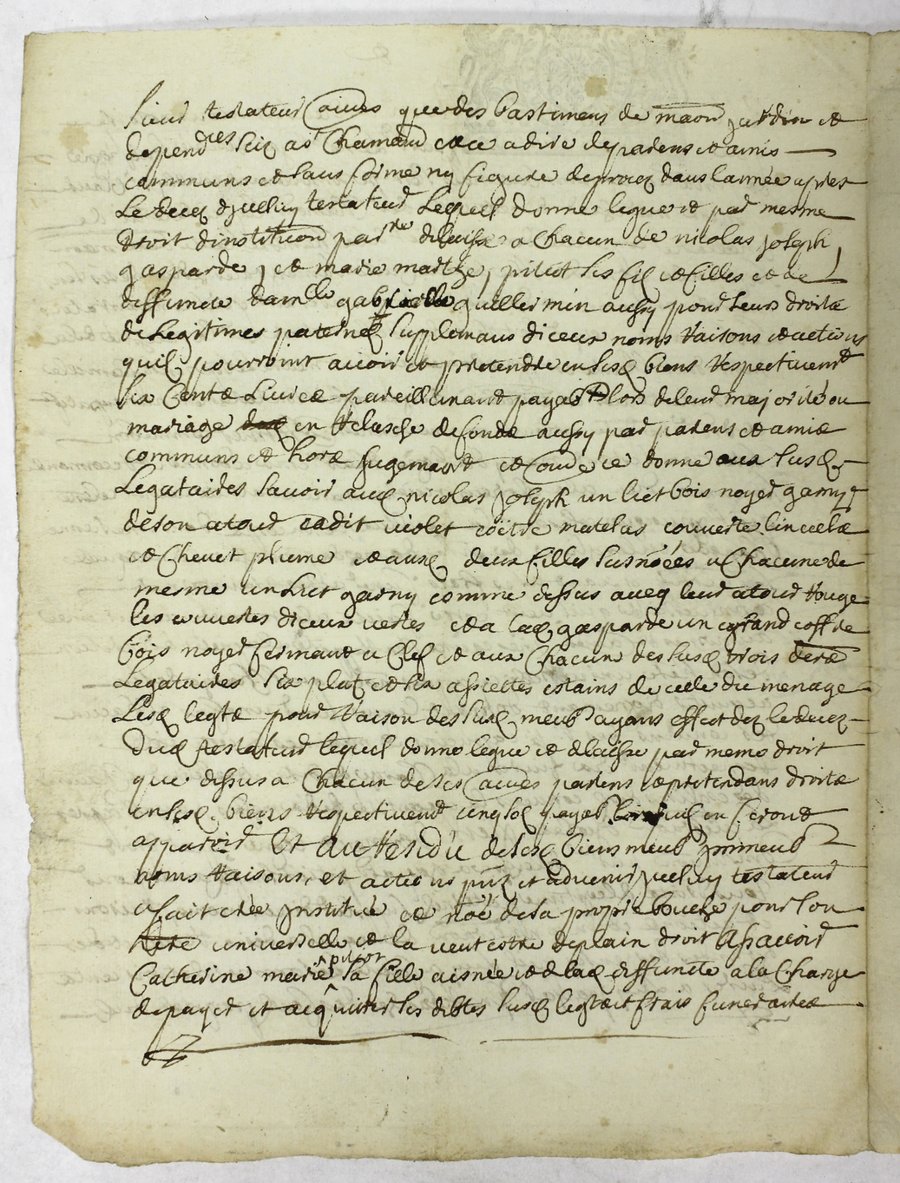 sieur testateur aives que des bastimens de maon jardin et
dependces seiz a st Chamand et ce a dire de parens et amis
communs et saus forme ny figure de procez dans lannee apres
le decez djcelluy testateur Lequel donne legue et par mesme
droit dinstitution par delaisse a chacun de nicolas joseph
gasparde et marie marthe pillot ses filz et filles et de
deffuncte damlle gabrielle guillermin aussy pour leurs droits
de Legitimes paternes supplemans diceux noms raisons et actions
quilz pourroint avoir et pretendre en sesd biens respectivemt
six Cents Livres pareillemant payab lors de leur majorité ou
mariage en relasche de fonds aussy par parens et amis
communs et hors jugemant et outre ce donne aux susd
Legataires savoir aud nicolas joseph un lict bois noyer garny
de son atour cadit violet coitre matelas couverte linceuls
et chevet plume et ausd deux filles susnoées a chacune de
mesme un Lict garny comme dessus aveq leur atour rouge
les couvertes diceux vertes et a lad gasparde un grand coffre
bois noyer fermant a clef et aux chacun des susd trois ders
Legataires six platz et six assiettes estains de celle du menage
Lesd legts pour raison des susd meub ayans effect dez le decez
dud testateur lequel donne legue et delaisse par meme droit
que dessus a chacun de ses aives parens et pretendans droits
en sesd biens respectivemt cinq solz payab lors quilz en feront
apparoir Et au Residu de sesd biens meub jmmeub
noms raisons et actions pntz et advenir jcelluy testateur
a fait cree jnstitué et noé de sa propre bouche pour son
here universelle et la veut estre de plain droit assavoir
Catherine marie pillot sa fille aisnée et de lad deffuncte a la charge
de payer et acquitter ses debtes susd legts et frais funeraires